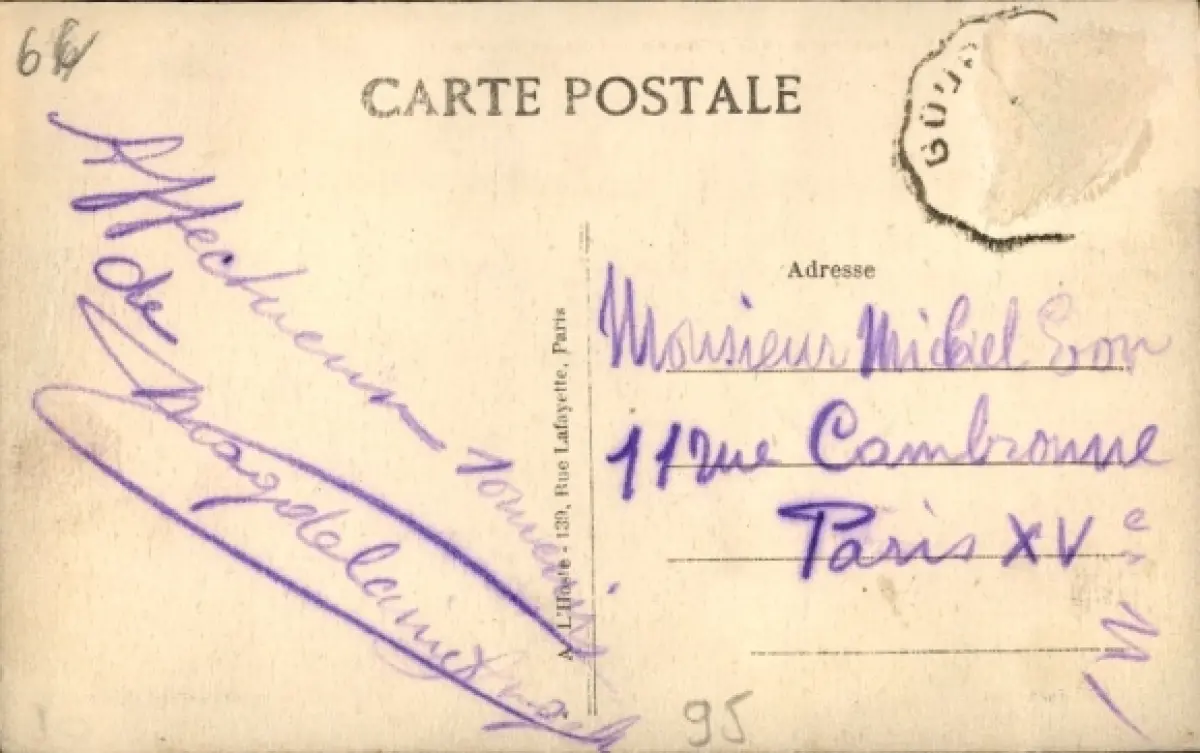 66
CARTE POSTALE
Affectueux souvenir
de
Magdeleine
A. L'Hoste - 139, Rue Lafayette, Paris
Adresse
Monsieur Michel
11 rue Cambronne
Paris XVe
95